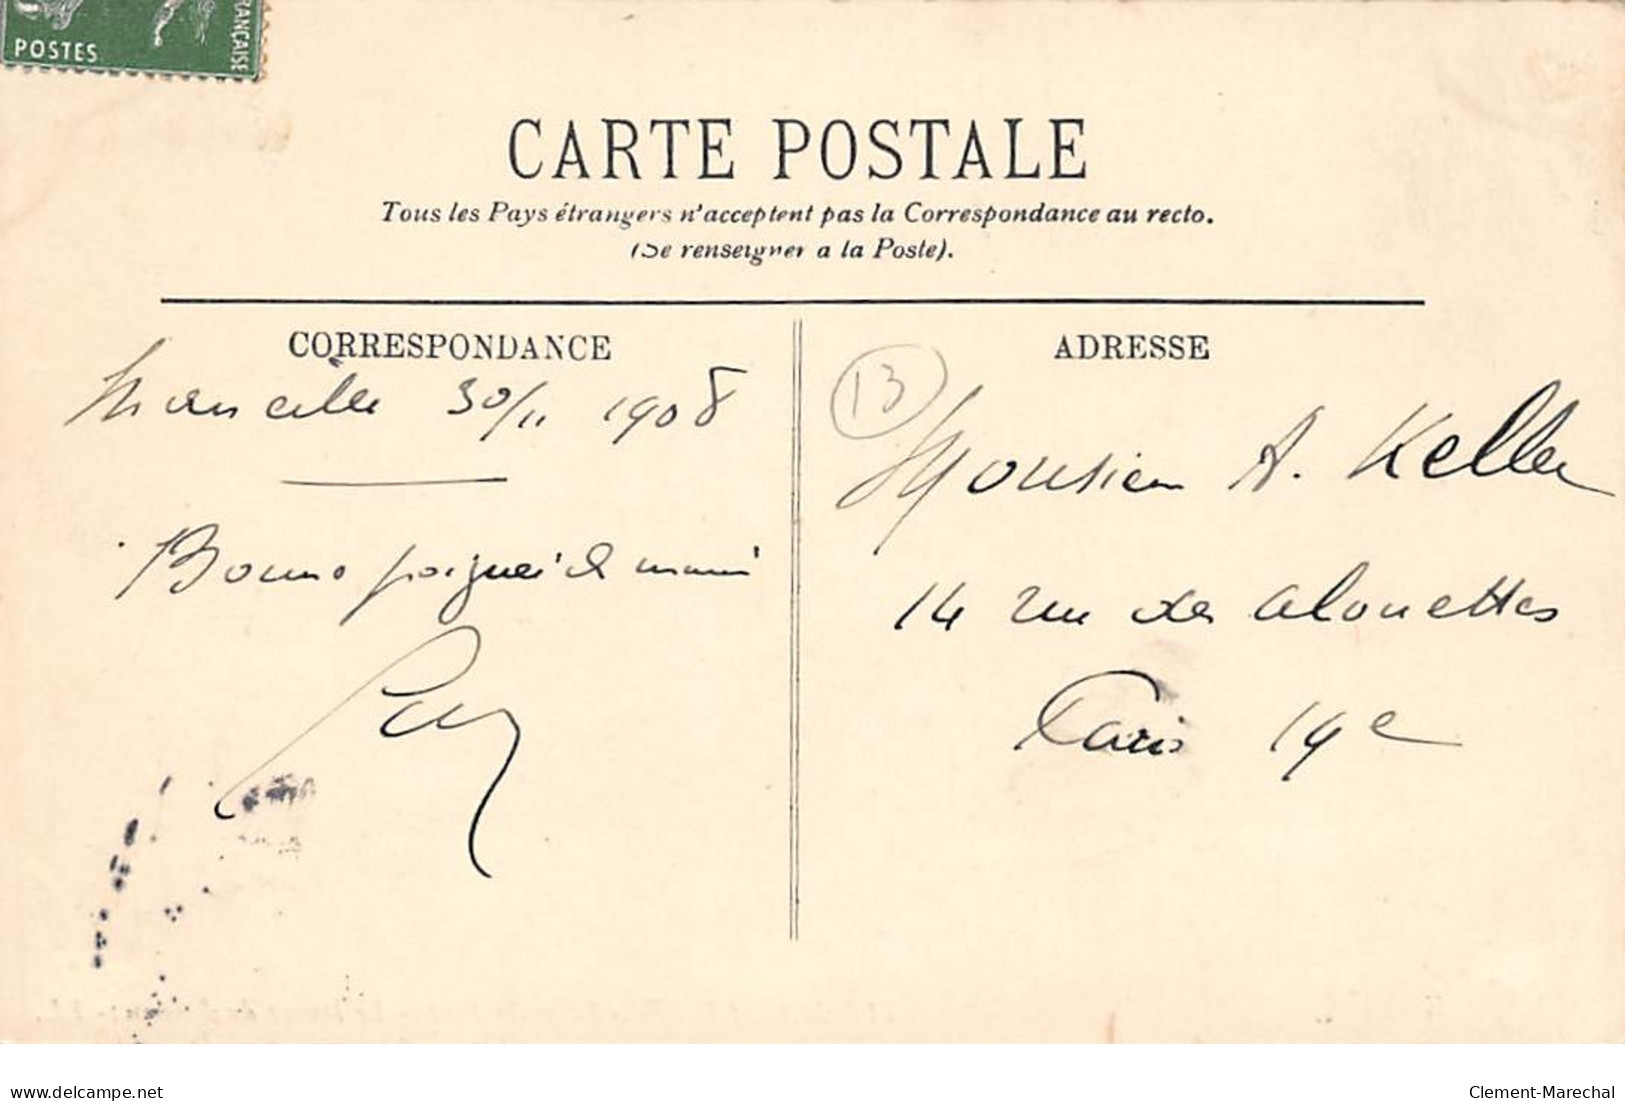 POSTES
FRANÇAISE
CARTE POSTALE
Tous les Pays étrangers n'acceptent pas la Correspondance au recto.
(Se renseigner a la Poste).
CORRESPONDANCE
ADRESSE
13
Marseille 30/11 1908
Bonne poignée de main
Monsieur A. Keller
14 rue des alouettes
Paris 19e
delcampe.net
Clement-Marechal